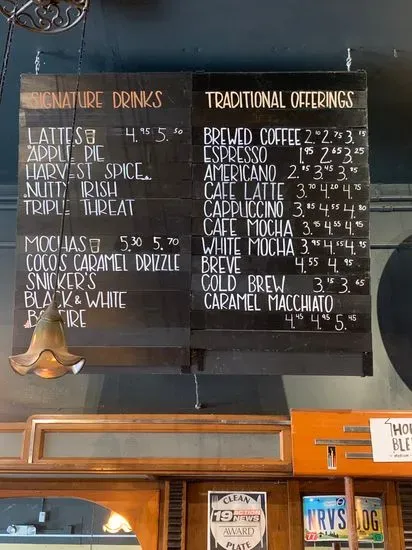 SIGNATURE DRINKS
LATTES 4.95 5.50
APPLE PIE
HARVEST SPICE
NUTTY IRISH
TRIPLE THREAT
MOCHAS 5.30 5.70
COCO'S CARAMEL DRIZZLE
SNICKER'S
BLACK & WHITE
TRADITIONAL OFFERINGS
BREWED COFFEE 2.10 2.75 3.15
ESPRESSO 1.95 2.65 3.25
AMERICANO 2.85 3.45 3.95
CAFE LATTE 3.70 4.20 4.75
CAPPUCCINO 3.85 4.55 4.80
CAFE MOCHA 3.95 4.55 4.95
WHITE MOCHA 3.95 4.55 4.95
BREVE 4.55 4.95
COLD BREW 3.15 3.65
CARAMEL MACCHIATO
4.45 4.95 5.45
HOU
BLE
CLEAN
19 ACTION
NEWS
AWARD
PLATE
NRVS
77
OG